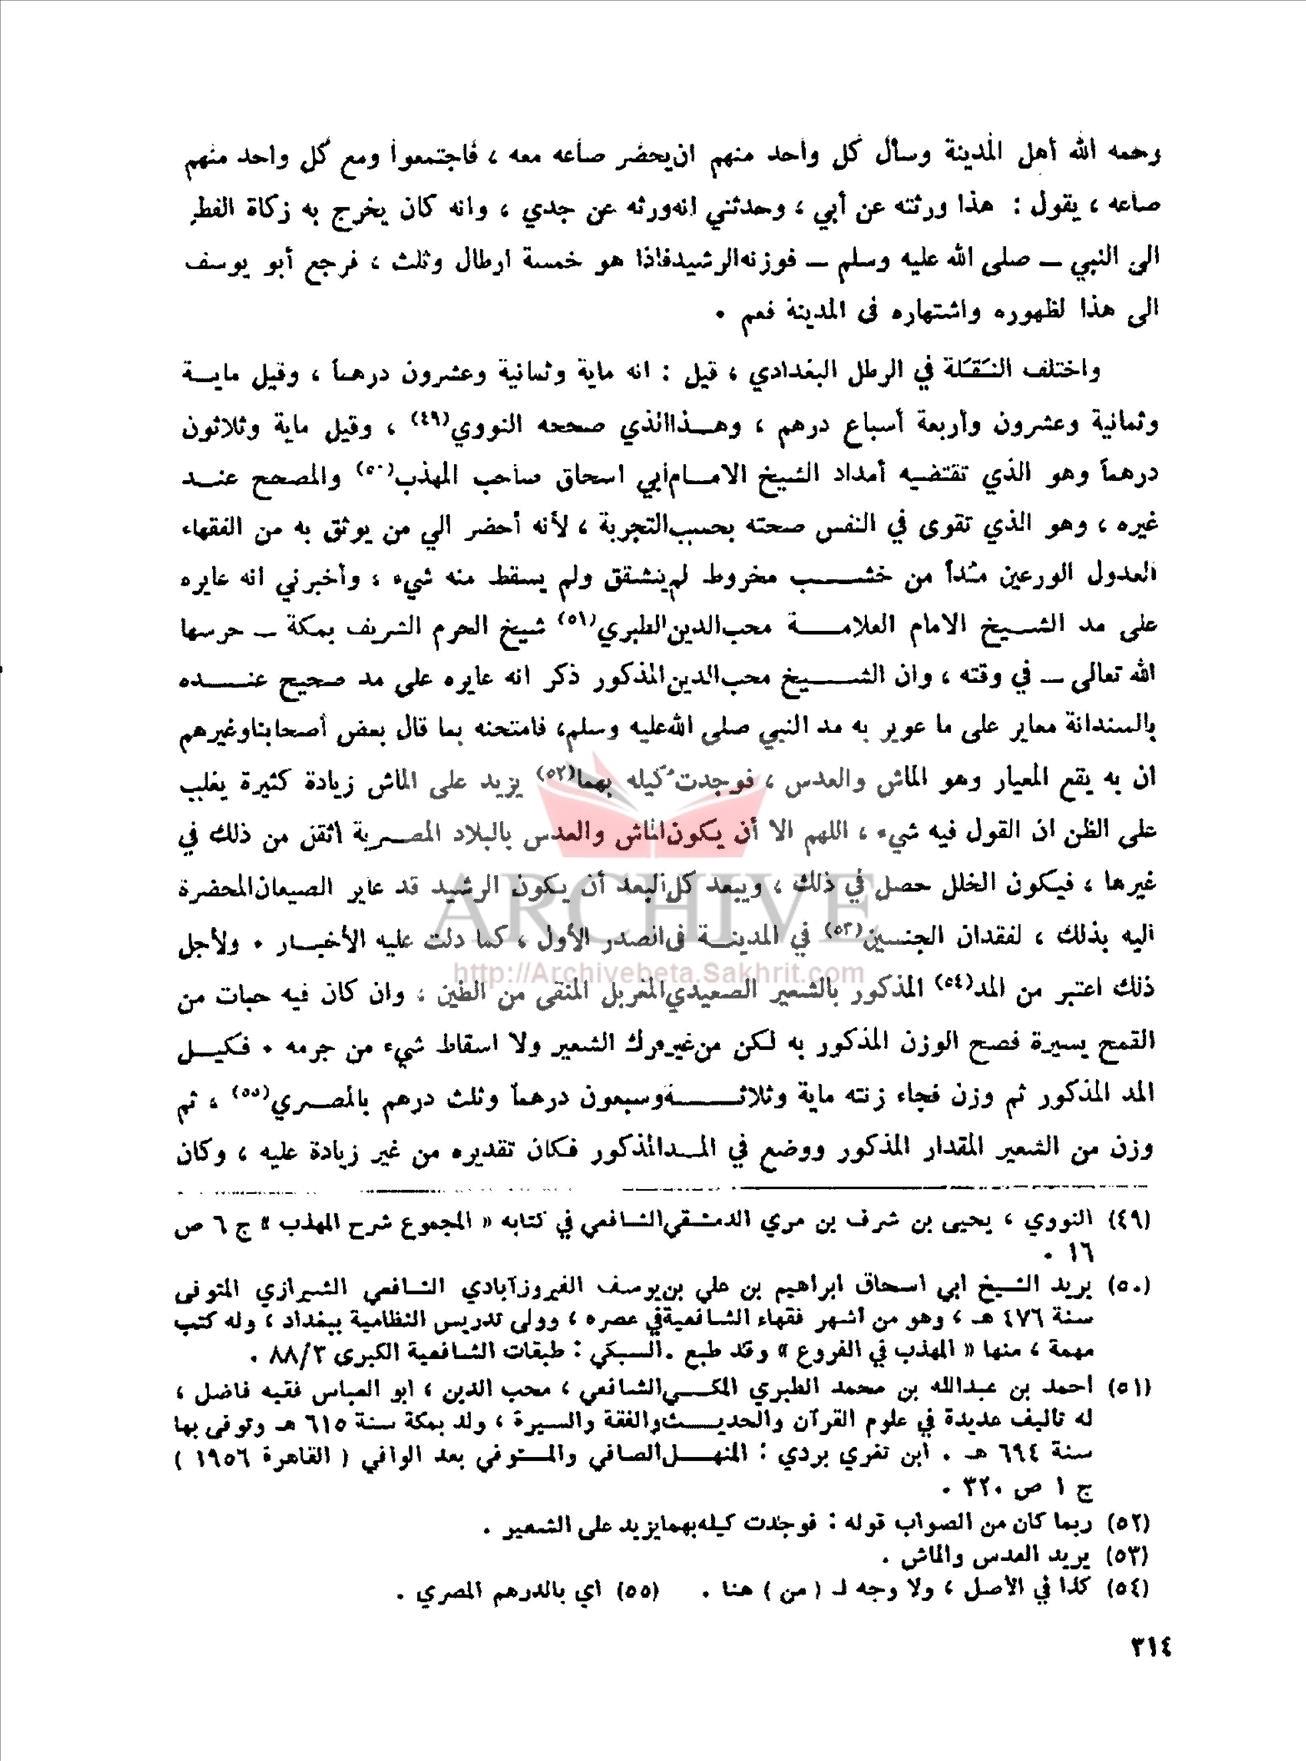 رحمه الله أهل المدينة وسأل كل واحد منهم ان يحضر صاعه معه ، فاجتمعوا ومع كل واحد منهم
صاعه ، يقول : هذا ورثته عن أبي ، وحدثني انه ورثه عن جدي ، وانه كان يخرج به زكاة الفطر
الى النبي — صلى الله عليه وسلم — فوزنه الرشيد فاذا هو خمسة ارطال وثلث ، فرجع أبو يوسف
الى هذا لظهوره واشتهاره في المدينة فعم .
واختلف النَقَلة في الرطل البغدادي ، قيل : انه ماية وثمانية وعشرون درهماً ، وقيل مايــة
وثمانية وعشرون وأربعة أسباع درهم ، وهــذا الذي صححه النووي(٤٩) ، وقيل ماية وثلاثون
درهماً وهو الذي تقتضيه أمداد الشيخ الامــام أبي اسحاق صاحب المهذب(٥٠) والمصحح عنــد
غيره ، وهو الذي تقوى في النفس صحته بحسب التجربة ، لأنه أحضر الي من يوثق به من الفقهاء
العدول الورعين مُداً من خشــب مخروط لم يتشقق ولم يسقط منه شيء ، وأخبرني انه عايره
على مد الشــيخ الامام العلامــة محب الدين الطبري(٥١) شيخ الحرم الشريف بمكة — حرسها
الله تعالى — في وقته ، وان الشــيخ محب الدين المذكور ذكر انه عايره على مد صحيح عنــده
بالسندانة معاير على ما عوير به مد النبي صلى الله عليه وسلم، فامتحنه بما قال بعض أصحابنا وغيرهم
ان به يقع المعيار وهو الماش والعدس ، فوجدت كيله بهما(٥٢) يزيد على الماش زيادة كثيرة يغلب
على الظن ان القول فيه شيء ، اللهم الا أن يكون الماش والعدس بالبلاد المصــرية أثقل من ذلك في
غيرها ، فيكون الخلل حصل في ذلك ، ويبعد كل البعد أن يكون الرشيد قد عاير الصيعان المحضرة
اليه بذلك ، لفقدان الجنسين(٥٣) في المدينــة في الصدر الأول ، كما دلت عليه الأخبــار . ولأجل
ذلك اعتبر من المد(٥٤) المذكور بالشعير الصعيدي المغربل المنقى من الطين ، وان كان فيه حبات من
القمح يسيرة فصح الوزن المذكور به لكن من غير فرك الشعير ولا اسقاط شيء من جرمه . فكيــل
المد المذكور ثم وزن فجاء زنته ماية وثلاثــة وسبعون درهماً وثلث درهم بالمصــري(٥٥) ، ثم
وزن من الشعير المقدار المذكور ووضع في المــد المذكور فكان تقديره من غير زيادة عليه ، وكان
(٤٩) النووي ، يحيى بن شرف بن مري الدمشقي الشافعي في كتابه « المجموع شرح المهذب » ج ٦ ص
١٦ .
(٥٠) يريد الشيخ ابي اسحاق ابراهيم بن علي بن يوسف الفيروزآبادي الشافعي الشيرازي المتوفى
سنة ٤٧٦ هـ ، وهو من أشهر فقهاء الشافعية في عصره ، وولي تدريس النظامية ببغداد ، وله كتب
مهمة ، منها « المهذب في الفروع » وقد طبع . السبكي : طبقات الشافعية الكبرى ٨٨/٣ .
(٥١) احمد بن عبدالله بن محمد الطبري المكــي الشافعي ، محب الدين ، ابو العباس فقيه فاضل ،
له تآليف عديدة في علوم القرآن والحديــث والفقة والسيرة ، ولد بمكة سنة ٦١٥ هـ وتوفى بها
سنة ٦٩٤ هـ . ابن تغري بردي : المنهــل الصافي والمستوفي بعد الوافي ( القاهرة ١٩٥٦ )
ج ١ ص ٣٢٠ .
(٥٢) ربما كان من الصواب قوله : فوجدت كيله بهما يزيد على الشعير .
(٥٣) يريد العدس والماش .
(٥٤) كذا في الأصل ، ولا وجه لـ ( من ) هنا . (٥٥) أي بالدرهم المصري .
٣١٤
ARCHIVE
http://Archivebeta.Sakhrit.com